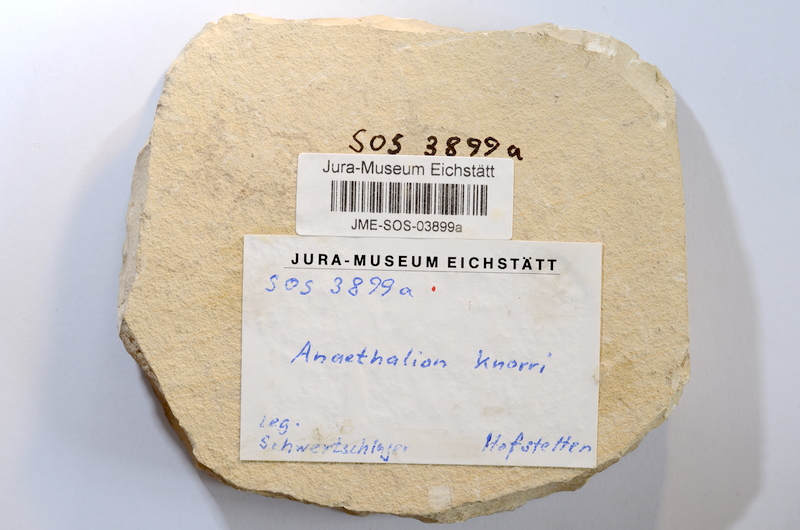 SOS 3899a
Jura-Museum Eichstätt
JME-SOS-03899a
JURA-MUSEUM EICHSTÄTT
SOS 3899a
Anaethalion knorri
Leg.
Schwertschlager Hofstetten